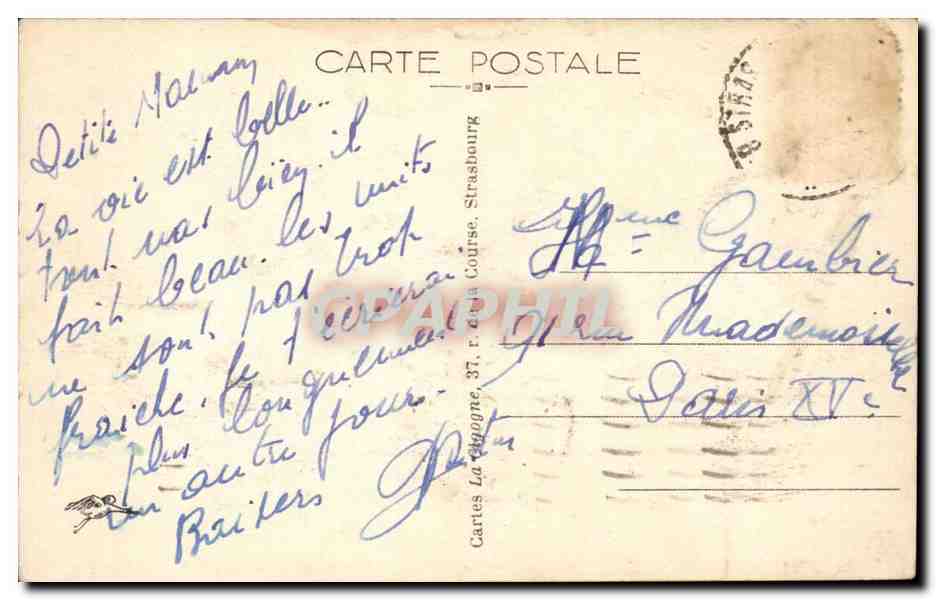 CARTE POSTALE
Petite Maman
La vie est belle..
tout vas bien. il
fait beau. les nuits
ne sont pas trop
fraiche. Je t'ecrirai
plus longuement
un autre jour.
Baisers
Cartes La Cigogne, 37, r. de la Course, Strasbourg
STRAS
Mme Gambier
91 rue Mademoiselle
Paris XVe
CPAPHIL